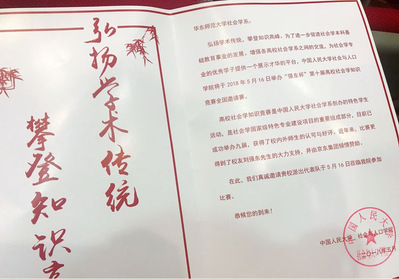 弘扬学术传统
攀登知识高
华东师范大学社会学系:
弘扬学术传统,攀登知识高峰,为了进一步促进社会学本科基
础教育事业的发展,增强各高校社会学系之间的交流,为社会学专
业的优秀学子提供一个展示才华的平台,中国人民大学社会与人口
学院将于 2018 年 5 月 16 日举办“强东杯”第十届高校社会学知识
竞赛全国邀请赛。
高校社会学知识竞赛是中国人民大学社会学系创办的特色学生
活动,是社会学国家级特色专业建设项目的重要组成部分,目前已
成功举办九届,获得了校内外师生的认可与好评。近年来,比赛更
得到了校友刘强东先生的大力支持,并由京东集团倾情赞助。
在此,我们真诚邀请贵校派出代表队于 5 月 16 日莅临我院参加
比赛。
恭候您的到来!
中国人民大学 社会与人口学院
二〇一八年五月